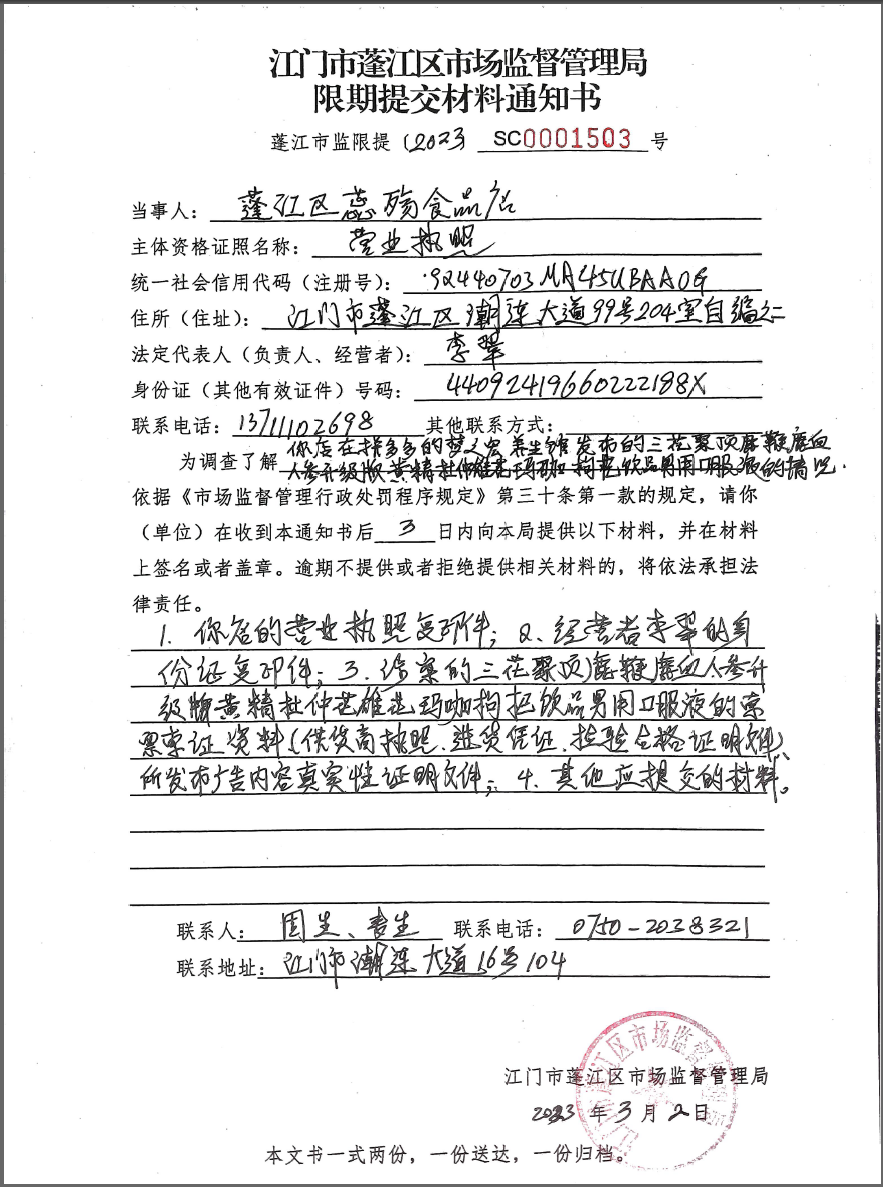 江门市蓬江区市场监督管理局
限期提交材料通知书
蓬江市监限提〔2023 SC0001503 号
当事人：蓬江区蕊殇食品店
主体资格证照名称：营业执照
统一社会信用代码（注册号）：92440703MA45UBAA0G
住所（住址）：江门市蓬江区潮连大道99号204室自编之二
法定代表人（负责人、经营者）：李翠
身份证（其他有效证件）号码：44092419660222188X
联系电话：13711102698 其他联系方式：
你店在拼多多的梦之宏养生馆发布的三花聚顶鹿鞭鹿血
为调查了解人参升级版黄精杜仲雄花玛咖枸杞饮品男用口服液的情况.
依据《市场监督管理行政处罚程序规定》第三十条第一款的规定，请你
（单位）在收到本通知书后 3 日内向本局提供以下材料，并在材料
上签名或者盖章。逾期不提供或者拒绝提供相关材料的，将依法承担法
律责任。
1. 你店的营业执照复印件；2、经营者李翠的身
份证复印件；3.涉案的三花聚顶鹿鞭鹿血人参升
级牌黄精杜仲雄花玛咖枸杞饮品男用口服液的索
票索证资料（供货商执照、进货凭证、检验合格证明文件）、
所发布广告内容真实性证明文件；4.其他应提交的材料。
联系人：周生、袁生 联系电话：0750-2038321
联系地址：江门市潮连大道16号104
江门市蓬江区市场监督管理局
2023 年 3 月 2 日
本文书一式两份，一份送达，一份归档。